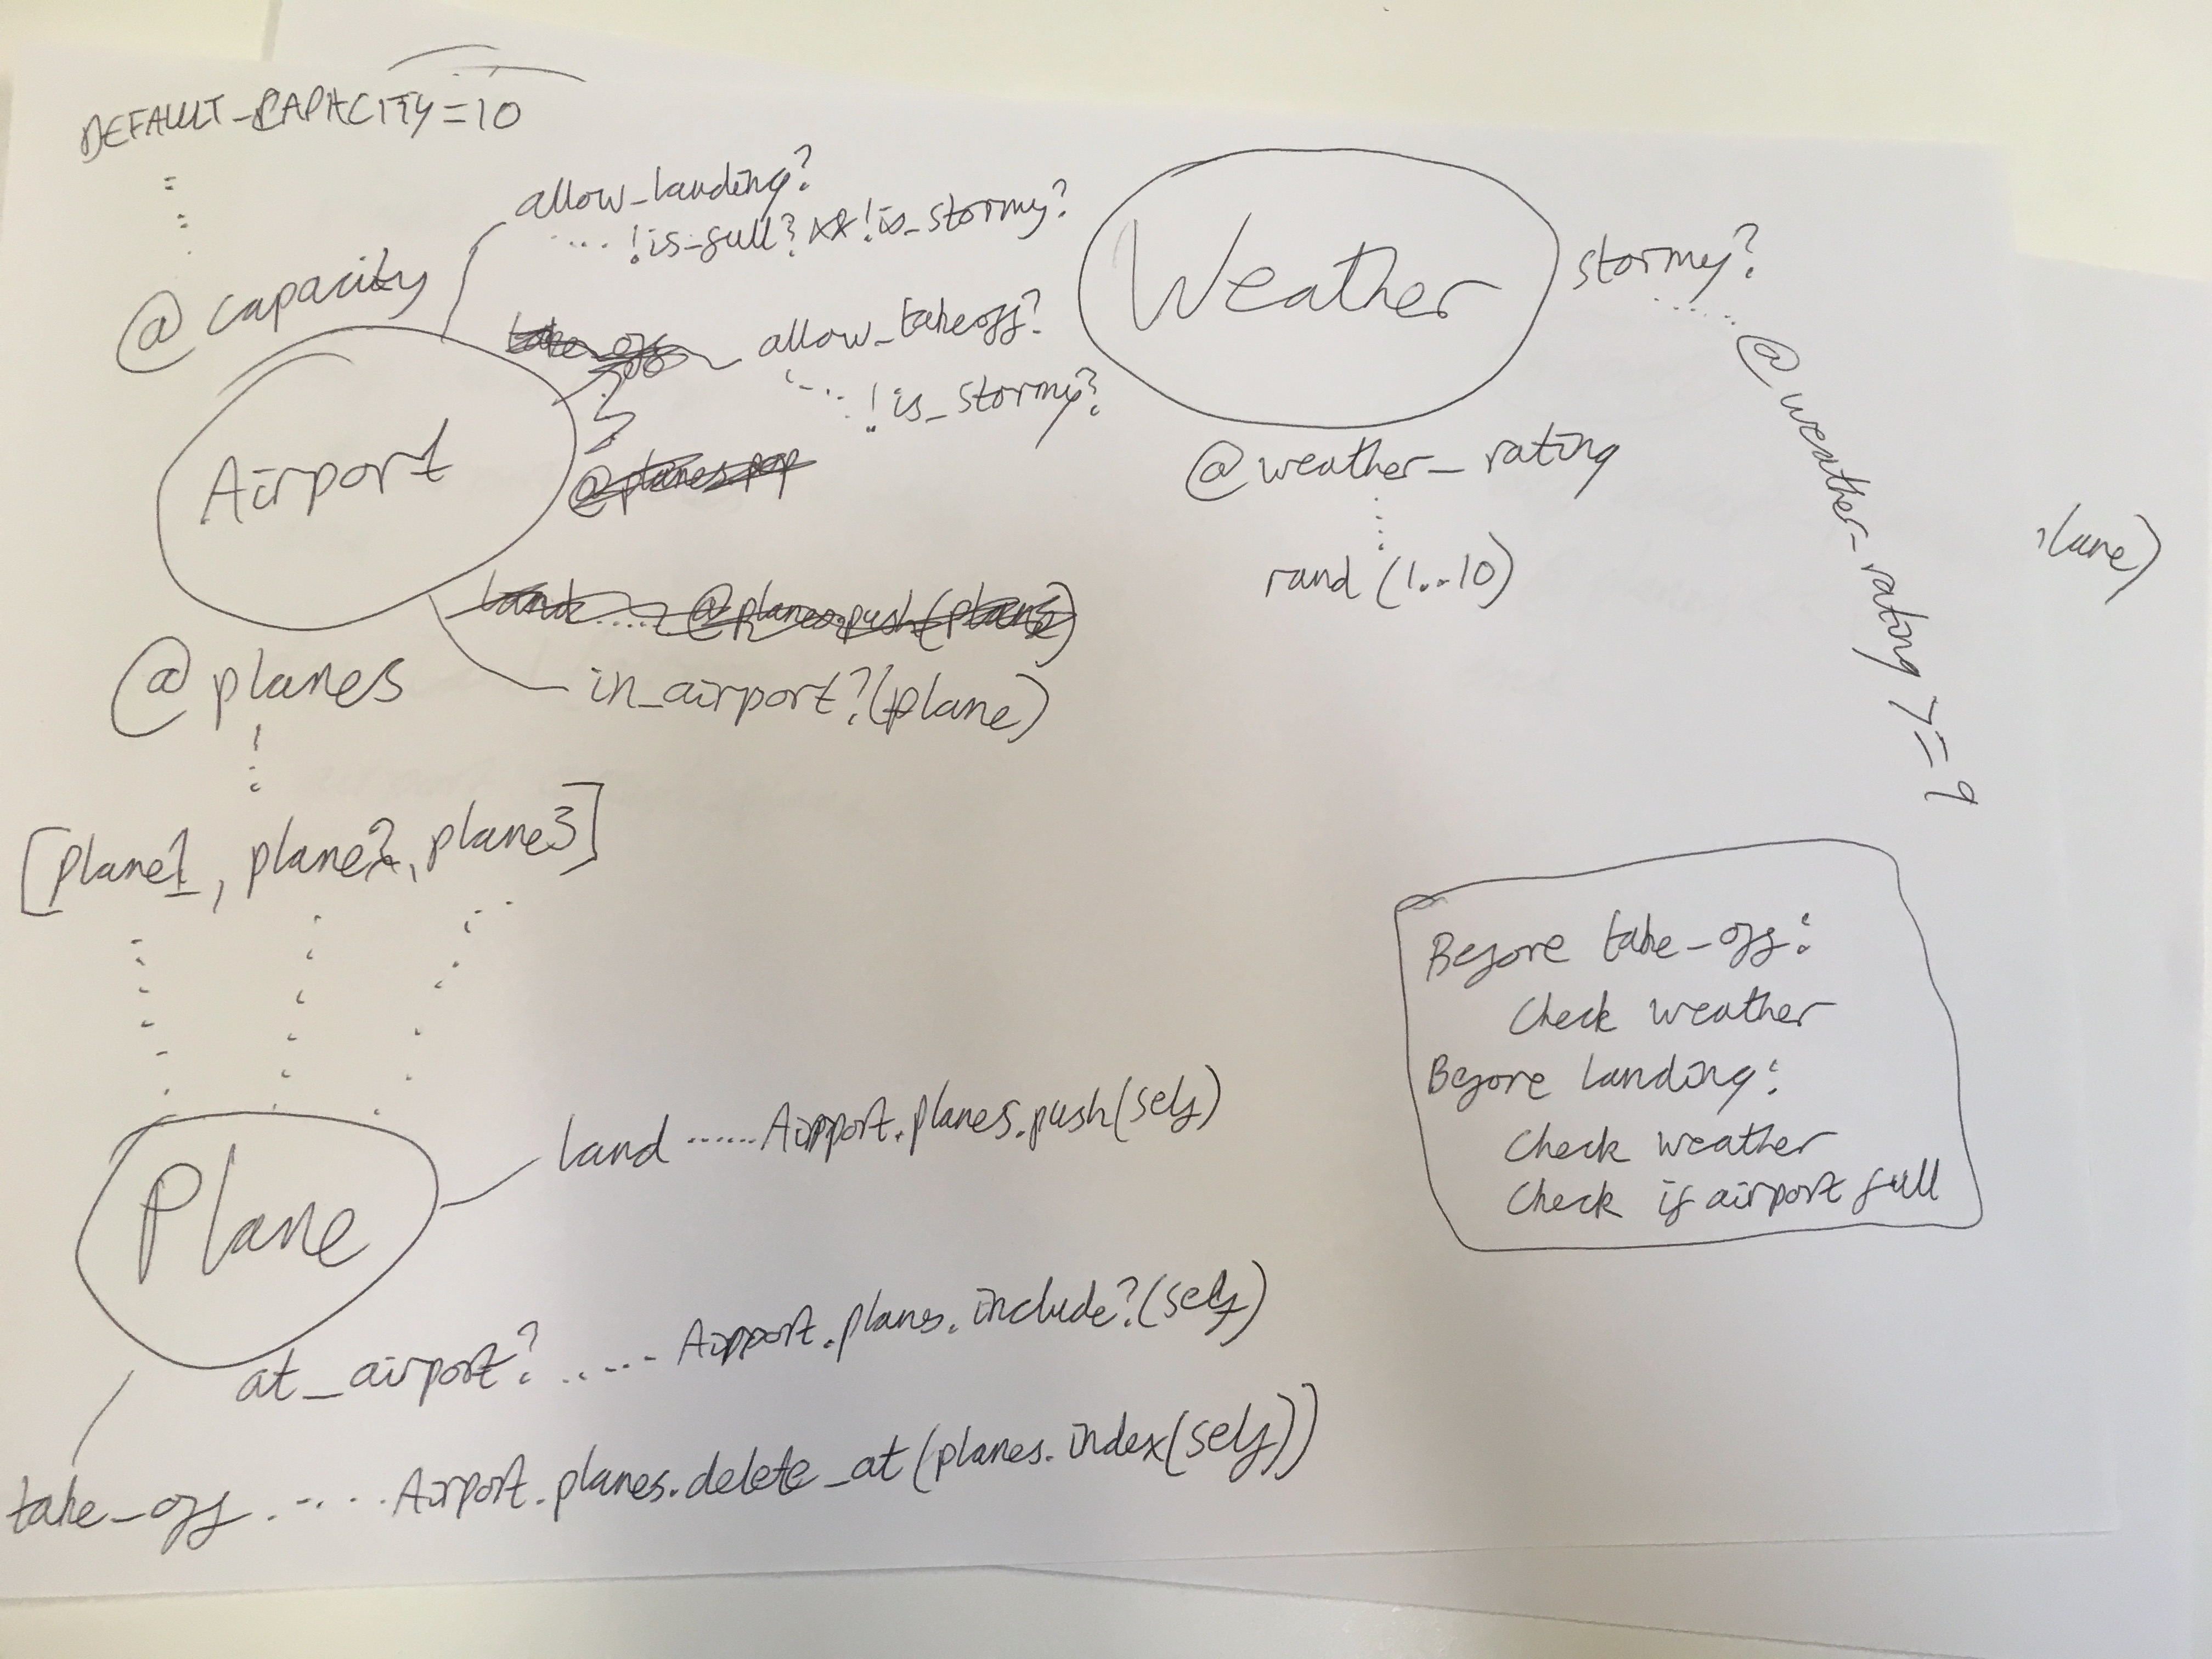 DEFAULT_CAPACITY=10
@capacity
allow_landing?
!is_full? && !is_stormy?
take_off
allow_takeoff?
!is_stormy?
@planes.pop
Airport
land @planes.push(plane)
in_airport?(plane)
@planes
[plane1, plane2, plane3]
Weather
stormy?
@weather_rating >= 9
@weather_rating
rand (1..10)
lane)
Before take_off:
Check weather
Before landing:
Check weather
Check if airport full
Plane
land Airport.planes.push(self)
at_airport? Airport.planes.include?(self)
take_off Airport.planes.delete_at(planes.index(self))